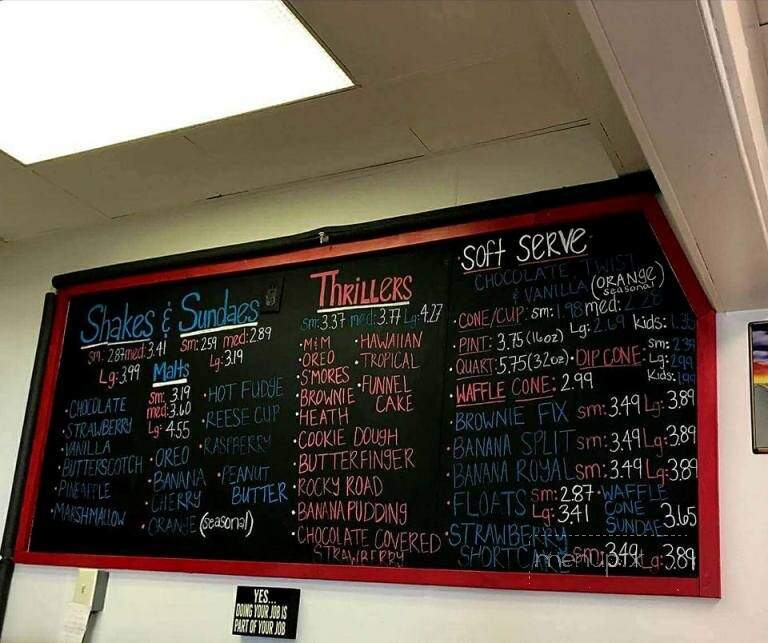 Shakes & Sundaes
sm: 2.87 med: 3.41 Lg: 3.99
sm: 2.59 med: 2.89 Lg: 3.19
Malts
sm: 3.19
med: 3.60
Lg: 4.55
• CHOCOLATE
• STRAWBERRY
• VANILLA
• BUTTERSCOTCH
• PINEAPPLE
• MARSHMALLOW
• OREO
• BANANA
CHERRY
• ORANGE (seasonal)
• HOT FUDGE
• REESE CUP
• RASPBERRY
• PEANUT
BUTTER
THRILLERS
sm: 3.37 med: 3.77 Lg: 4.27
• M&M
• OREO
• S'MORES
• BROWNIE
• HEATH
• COOKIE DOUGH
• BUTTERFINGER
• ROCKY ROAD
• BANANA PUDDING
• CHOCOLATE COVERED
STRAWBERRY
• HAWAIIAN
• TROPICAL
• FUNNEL
CAKE
• SOFT SERVE •
CHOCOLATE, TWIST
& VANILLA (ORANGE)
seasonal
• CONE/CUP: sm: 1.98 med: 2.28
Lg: 2.69 kids:
• PINT: 3.75 (16oz)
• QUART: 5.75 (32oz)
• DIP CONE: sm:
Lg: 2.99
kids:
• WAFFLE CONE: 2.99
• BROWNIE FIX sm: 3.49 Lg: 3.89
• BANANA SPLIT sm: 3.49 Lg: 3.89
• BANANA ROYAL sm: 3.49 Lg: 3.89
• FLOATS sm: 2.87
Lg: 3.41
• WAFFLE
CONE
SUNDAE 3.65
• STRAWBERRY
SHORTCAKE sm: 3.49 Lg: 3.89
menupix
YES...
DOING YOUR JOB IS
PART OF YOUR JOB